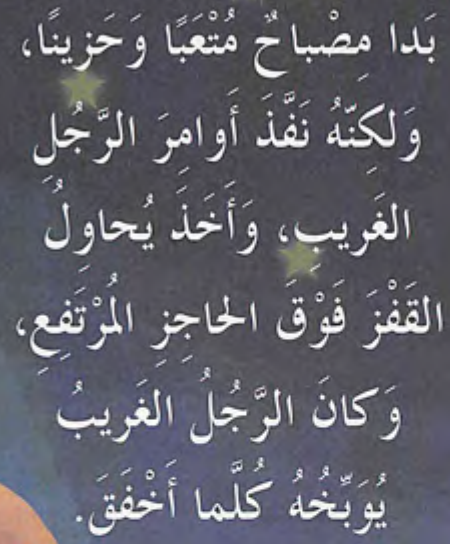 بَدا مِصْباحٌ مُتْعَبًا وَحَزينًا،
وَلكِنَّهُ نَفَّذَ أَوامِرَ الرَّجُلِ
الغَريبِ، وَأَخَذَ يُحاوِلُ
القَفْزَ فَوْقَ الحاجِزِ المُرْتَفِعِ،
وَكانَ الرَّجُلُ الغَريبُ
يُوَبِّخُهُ كُلَّما أَخْفَقَ.